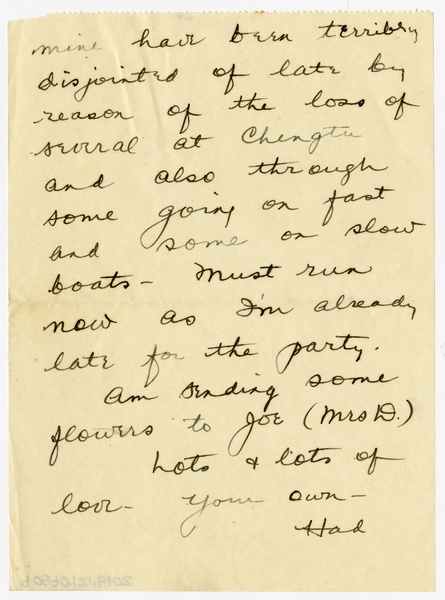 mine have been terribly
disjointed of late by
reason of the loss of
several at Chengtu
and also through
some going on fast
and some on slow
boats - Must run
now as I'm already
late for the party.
Am sending some
flowers to Joe (Mrs D.)
Lots & lots of
love - Your own -
Had